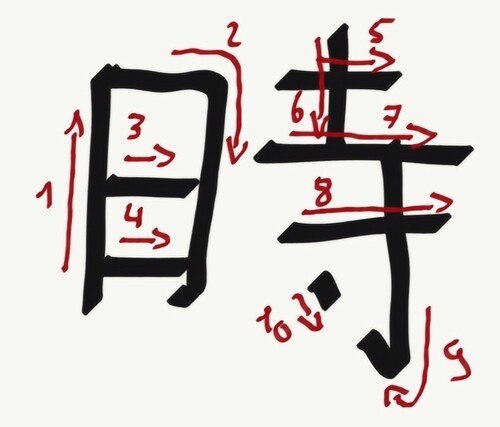 時
1
2
3
4
5
6
7
8
9
10